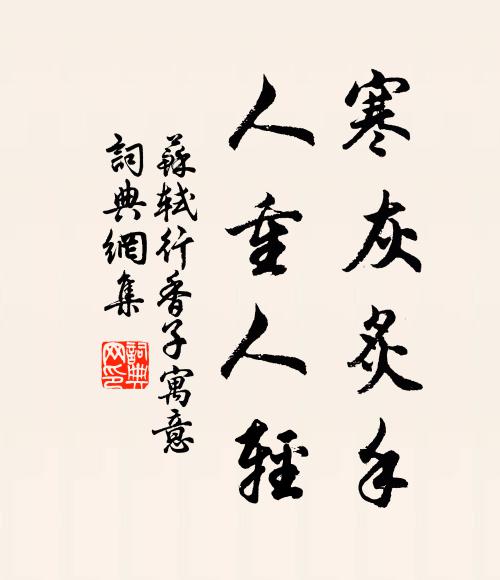 寒灰炙手
人重人輕
蘇軾行香子寓意
詞典網集
詞典
网印